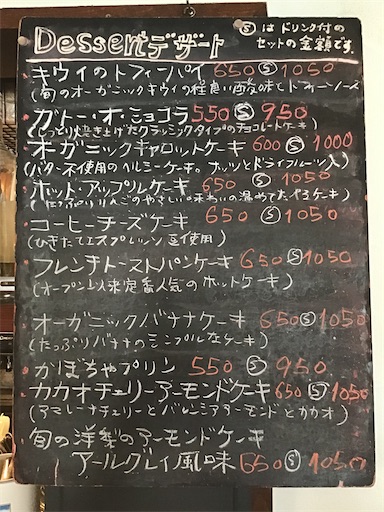 Dessertデザート
Ⓢはドリンク付の
セットの金額です。
キウイのトフィーパイ 650 Ⓢ 1050
(旬のオーガニックキウイの程良い酸味とトフィーソース
ガトー・オ・ショコラ 550 Ⓢ 950
(じっとり焼き上げたクラッシックタイプのチョコレートケーキ)
オーガニックキャロットケーキ 600 Ⓢ 1000
(バター不使用のヘルシーケーキ。ナッツとドライフルーツ入)
ホット・アップルケーキ 650 Ⓢ 1050
りんごのやさしい味わい 温めてたべるケーキ)
コーヒーチーズケーキ 650 Ⓢ 1050
(ひきたてエスプレッソ豆使用)
フレンチトーストパンケーキ 650 Ⓢ 1050
(オープン以来定番人気のホットケーキ)
オーガニックバナナケーキ 650 Ⓢ 1050
(たっぷりバナナのシンプルなケーキ)
かぼちゃプリン 550 Ⓢ 950
カカオチェリーアーモンドケーキ 650 Ⓢ 1050
(アマレーナチェリーとバレンシアアーモンドとカカオ)
旬の洋梨のアーモンドケーキ
アールグレイ風味 650 Ⓢ 1050